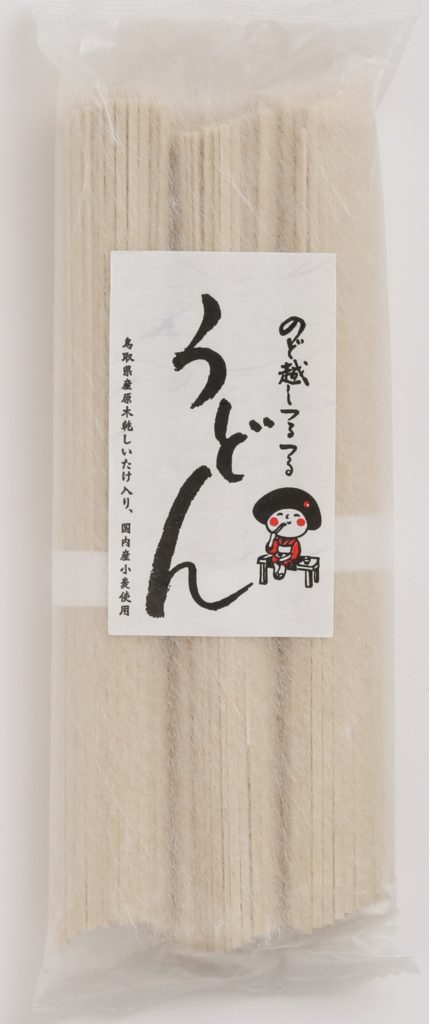 のど越しつるつる
うどん
鳥取県産原木乾しいたけ入り、国内産小麦使用